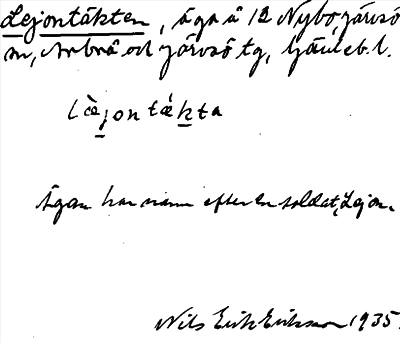 Lejontäkten, äga å 12 Nybo, Järvsö
sn, Arbrå och Järvsö tg, Gävleb. l.
lὰjontǽkta
Ägan har namn efter en soldat, Lejon.
Nils Erik Eriksson 1935.